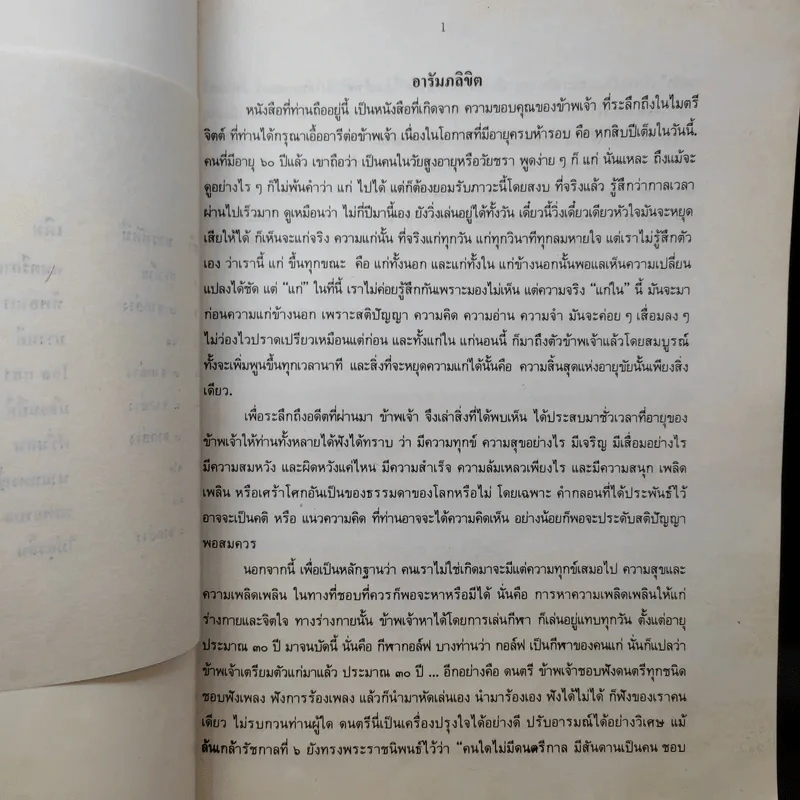 1
อารัมภลิขิต
หนังสือที่ท่านถืออยู่นี้ เป็นหนังสือที่เกิดจาก ความขอบคุณของข้าพเจ้า ที่ระลึกถึงในไมตรี
จิตต์ ที่ท่านได้กรุณาเอื้ออารีต่อข้าพเจ้า เนื่องในโอกาสที่มีอายุครบห้ารอบ คือ หกสิบปีเต็มในวันนี้.
คนที่มีอายุ ๖๐ ปีแล้ว เขาถือว่า เป็นคนในวัยสูงอายุหรือวัยชรา พูดง่าย ๆ ก็ แก่ นั่นแหละ ถึงแม้จะ
ดูอย่างไร ๆ ก็ไม่พ้นคำว่า แก่ ไปได้ แต่ก็ต้องยอมรับภาวะนี้โดยสงบ ที่จริงแล้ว รู้สึกว่ากาลเวลา
ผ่านไปเร็วมาก ดูเหมือนว่า ไม่กี่ปีมานี้เอง ยังวิ่งเล่นอยู่ได้ทั้งวัน เดี๋ยวนี้วิ่งเดี๋ยวเดียวหัวใจมันจะหยุด
เสียให้ได้ ก็เห็นจะแก่จริง ความแก่นั้น ที่จริงแก่ทุกวัน แก่ทุกวินาทีทุกลมหายใจ แต่เราไม่รู้สึกตัว
เอง ว่าเรานี้ แก่ ขึ้นทุกขณะ คือ แก่ทั้งนอก และแก่ทั้งใน แก่ข้างนอกนั้นพอแลเห็นความเปลี่ยน
แปลงได้ชัด แต่ “แก่” ในที่นี้ เราไม่ค่อยรู้สึกกันเพราะมองไม่เห็น แต่ความจริง “แก่ใน” นี้ มันจะมา
ก่อนความแก่ข้างนอก เพราะสติปัญญา ความคิด ความอ่าน ความจำ มันจะค่อย ๆ เสื่อมลง ๆ
ไม่ว่องไวปราดเปรียวเหมือนแต่ก่อน และทั้งแก่ใน แก่นอนนี้ ก็มาถึงตัวข้าพเจ้าแล้วโดยสมบูรณ์
ทั้งจะเพิ่มพูนขึ้นทุกเวลานาที และสิ่งที่จะหยุดความแก่ได้นั้นคือ ความสิ้นสุดแห่งอายุขัยนั้นเพียงสิ่ง
เดียว.
เพื่อระลึกถึงอดีตที่ผ่านมา ข้าพเจ้า จึงเล่าสิ่งที่ได้พบเห็น ได้ประสบมาชั่วเวลาที่อายุของ
ข้าพเจ้าให้ท่านทั้งหลายได้ฟังได้ทราบ ว่า มีความทุกข์ ความสุขอย่างไร มีเจริญ มีเสื่อมอย่างไร
มีความสมหวัง และผิดหวังแค่ไหน มีความสำเร็จ ความล้มเหลวเพียงไร และมีความสนุก เพลิด
เพลิน หรือเศร้าโศกอันเป็นของธรรมดาของโลกหรือไม่ โดยเฉพาะ คำกลอนที่ได้ประพันธ์ไว้
อาจจะเป็นคติ หรือ แนวความคิด ที่ท่านอาจจะได้ความคิดเห็น อย่างน้อยก็พอจะประดับสติปัญญา
พอสมควร
นอกจากนี้ เพื่อเป็นหลักฐานว่า คนเราไม่ใช่เกิดมาจะมีแต่ความทุกข์เสมอไป ความสุขและ
ความเพลิดเพลิน ในทางที่ชอบที่ควรก็พอจะหาหรือมีได้ นั่นคือ การหาความเพลิดเพลินให้แก่
ร่างกายและจิตใจ ทางร่างกายนั้น ข้าพเจ้าหาได้โดยการเล่นกีฬา ก็เล่นอยู่แทบทุกวัน ตั้งแต่อายุ
ประมาณ ๓๐ ปี มาจนบัดนี้ นั่นคือ กีฬากอล์ฟ บางท่านว่า กอล์ฟ เป็นกีฬาของคนแก่ นั่นก็แปลว่า
ข้าพเจ้าเตรียมตัวแก่มาแล้ว ประมาณ ๓๐ ปี ... อีกอย่างคือ ดนตรี ข้าพเจ้าชอบฟังดนตรีทุกชนิด
ชอบฟังเพลง ฟังการร้องเพลง แล้วก็นำมาหัดเล่นเอง นำมาร้องเอง ฟังได้ไม่ได้ ก็ฟังของเราคน
เดียว ไม่รบกวนท่านผู้ใด ดนตรีนี่เป็นเครื่องปรุงใจได้อย่างดี ปรับอารมณ์ได้อย่างวิเศษ แม้
ล้นเกล้ารัชกาลที่ ๖ ยังทรงพระราชนิพนธ์ไว้ว่า “คนใดไม่มีดนตรีกาล มีสันดานเป็นคน ชอบ